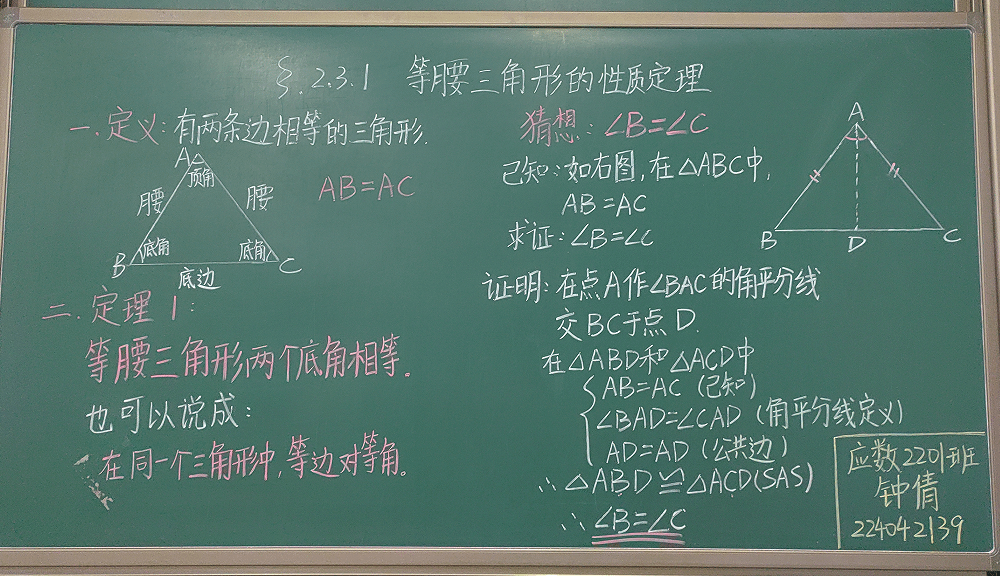 §.2.3.1 等腰三角形的性质定理
一.定义:有两条边相等的三角形.
A
顶角
腰 腰
AB=AC
底角 底角
B C
底边
二.定理1:
等腰三角形两个底角相等.
也可以说成:
在同一个三角形中,等边对等角。
猜想:∠B=∠C
已知:如右图,在△ABC中,
AB=AC
求证:∠B=∠C
A
B D C
证明:在点A作∠BAC的角平分线
交BC于点D.
在△ABD和△ACD中
AB=AC(已知)
∠BAD=∠CAD(角平分线定义)
AD=AD(公共边)
∴△ABD≌△ACD(SAS)
∴∠B=∠C
应数2201班
钟倩
224042139